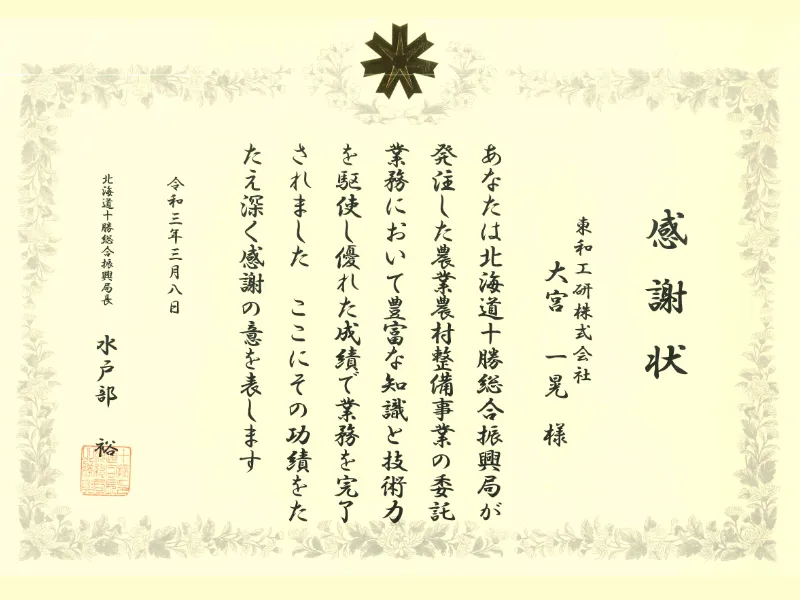 感謝状
東和工研株式会社
大宮 一晃 様
あなたは北海道十勝総合振興局が
発注した農業農村整備事業の委託
業務において豊富な知識と技術力
を駆使し優れた成績で業務を完了
されました ここにその功績をた
たえ深く感謝の意を表します
令和三年三月八日
北海道十勝総合振興局長
水戸部 裕